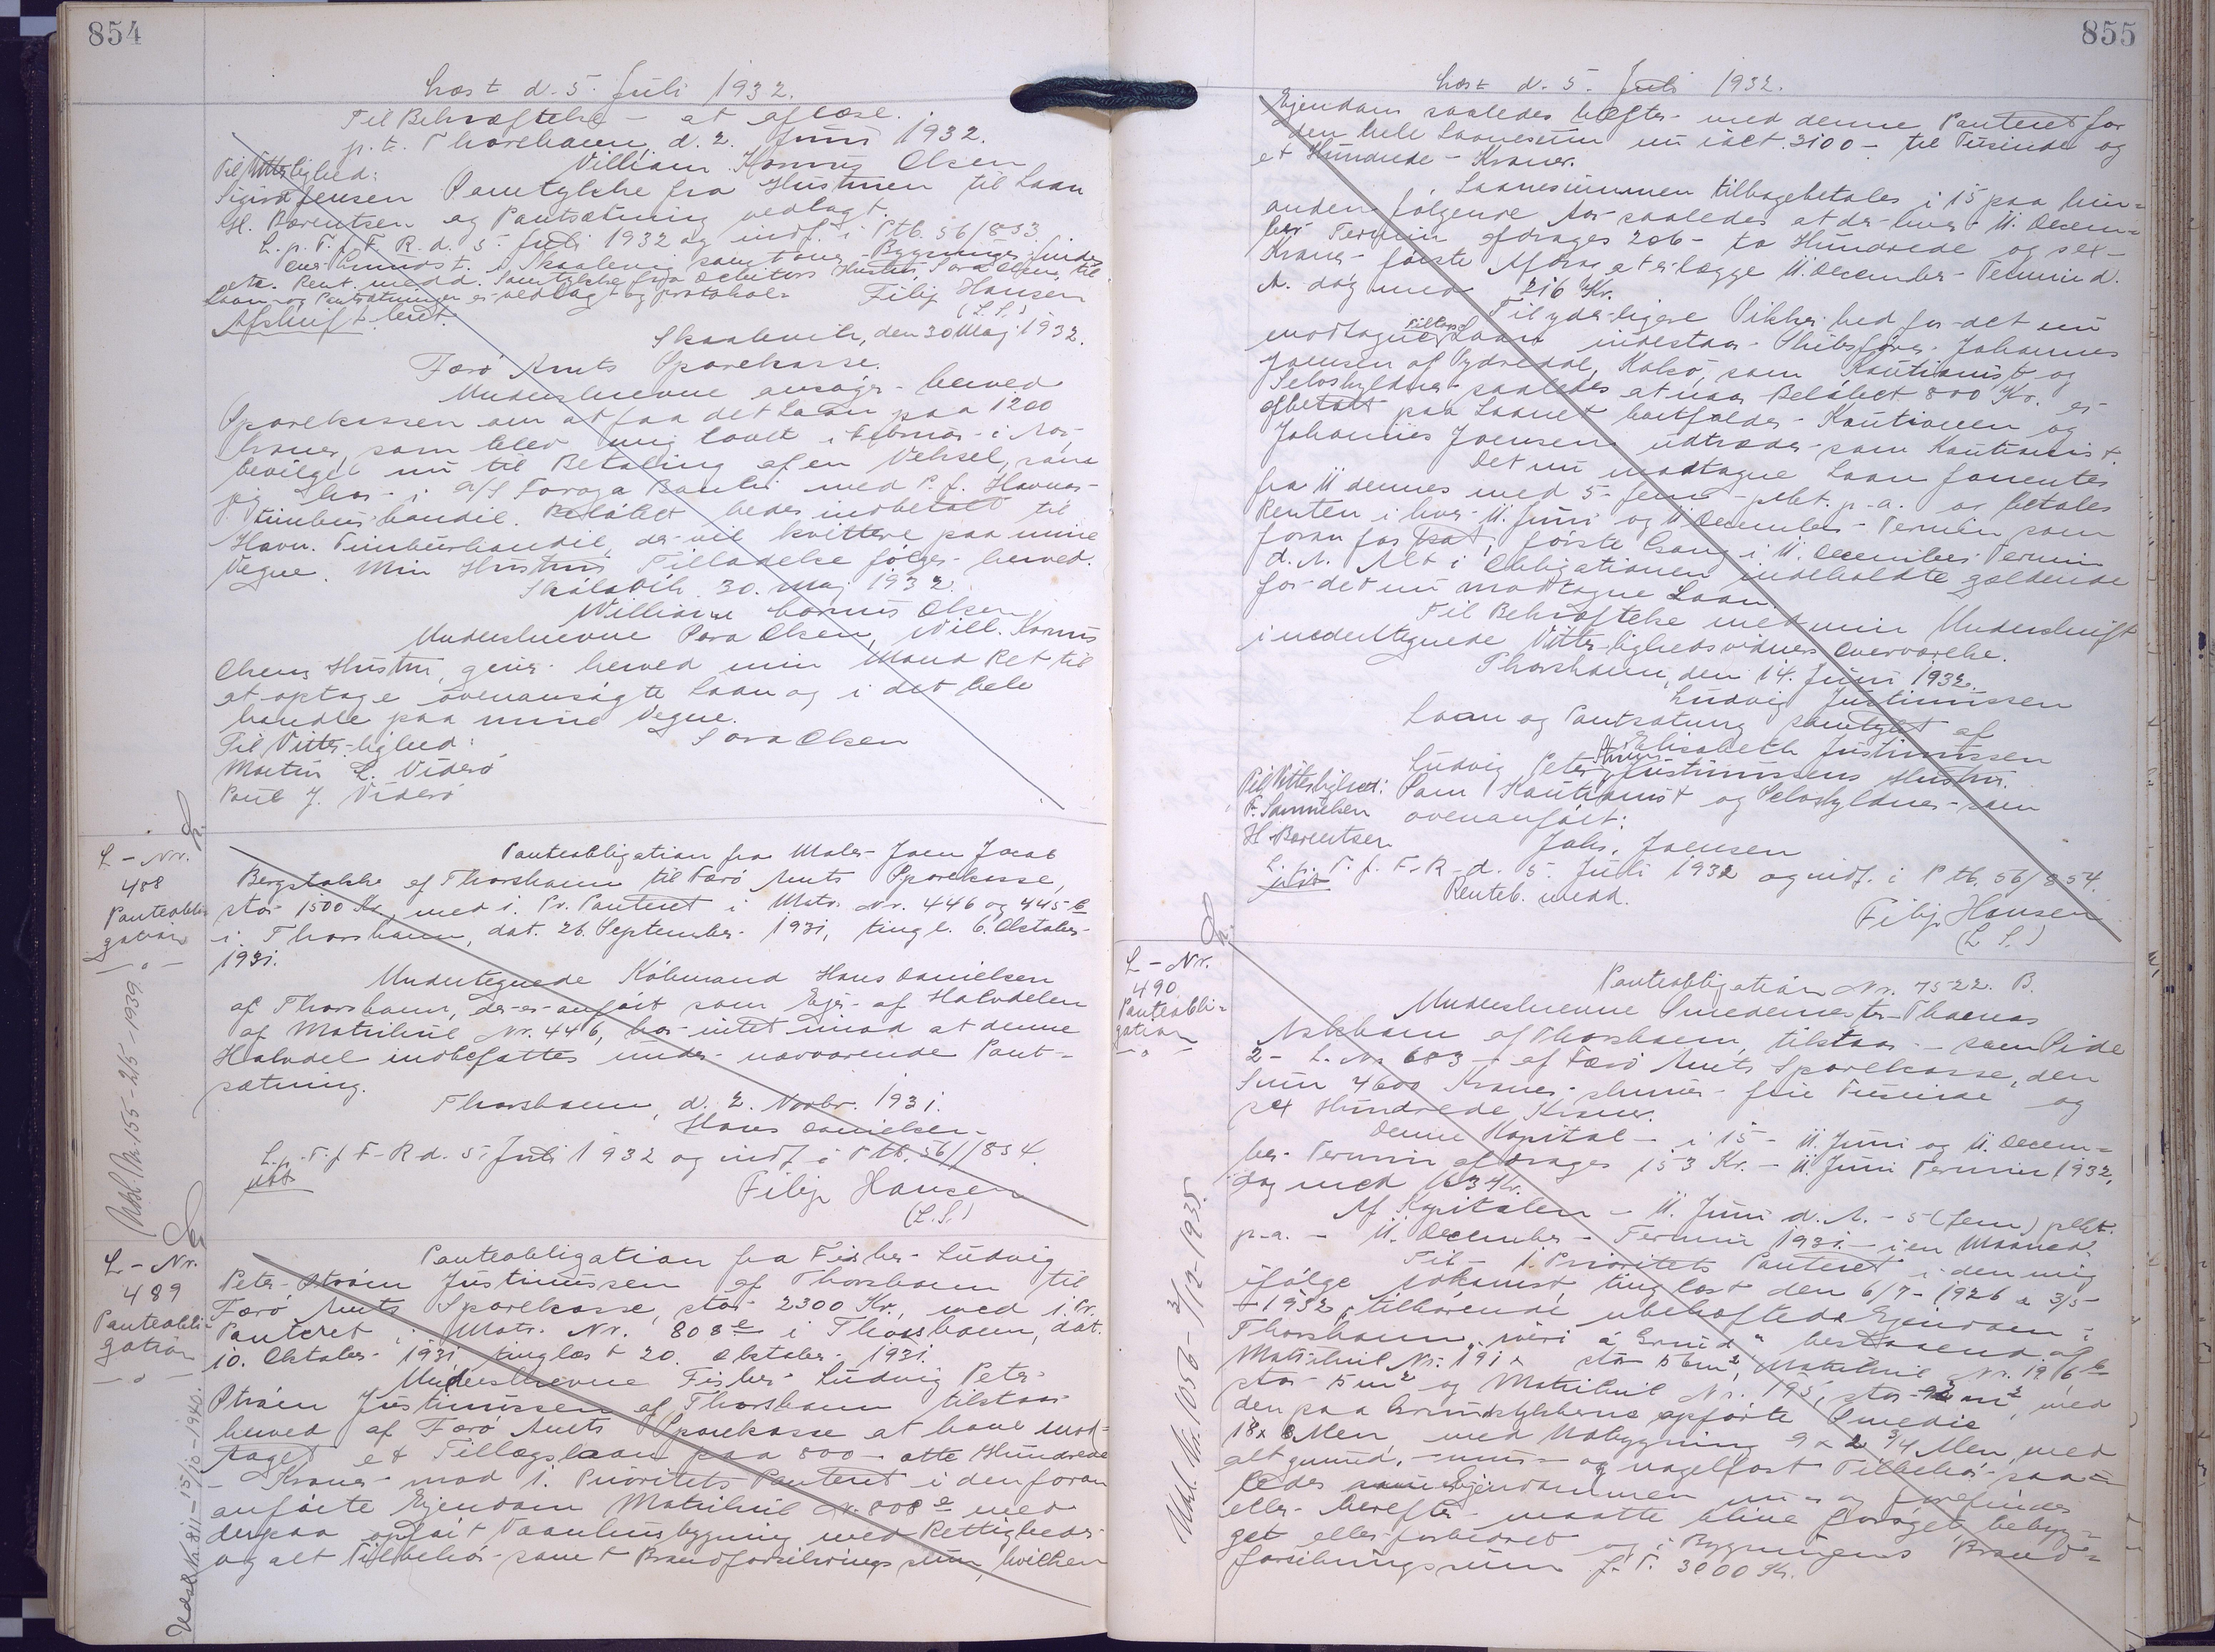 854
Læst d. 5. Juli 1932.
Til Bekræftelse - at aflæse.
p. t. Thorshavn, d. 2. Juni 1932.
William Kornus Olsen
Til Vitterlighed:
Sigurd Jensen Samtykke fra Hustruen til Laan
H. Barentsen og Pantsætning vedlagt.
L. p. T. f. F. R. d. 5. Juli 1932 og indf. i Ptb. 56/853
Grundst. i Skaalevig samt Bygninger findes
etc. Rent. medd. Samtykke fra Debitors Hustru Sara Olsen til
Laan og Pantsætningen er vedlagt og protokol. Filip Hansen
(L.S.)
Afskrift læst.
Skaalevik, den 30 Maj 1932.
Færø Amts Sparekasse.
Underskrevne ansøger herved
Sparekassen om at faa det Laan paa 1200
Kroner, som blev mig lovet i Februar i Aar,
bevilget nu til Betaling af en Veksel, som
jeg har i A/S Føroya Banki med P. f. Havnar-
timburhandil. Beløbet bedes indbetalt til
Havn. Timburhandil, der vil kvittere paa mine
Vegne. Min Hustrus Tilladelse følger herved.
Skálavík 30. Maj 1932.
William Cornus Olsen
Underskrevne Sara Olsen, Will. Kornus
Olsens Hustru, giver herved min Mand Ret til
at optage ovenansøgte Laan og i det hele
handle paa mine Vegne.
Til Vitterlighed: Sara Olsen
Martin L. Viderø
Poul J. Viderø
L-Nr.
488
Panteobli-
gation
Udsl. Nr. 155 - 2/5 - 1939.
Panteobligation fra Maler Joen Jacob
Bergstakke af Thorshavn til Færø Amts Sparekasse,
stor 1500 Kr. med 1. Pr. Panteret i Matr. Nr. 446 og 445 c
i Thorshavn, dat. 26. September 1931, tingl. 6. Oktober
1931.
Undertegnede Købmand Hans Danielsen
af Thorshavn, der er anført som Ejer af Halvdelen
af Matrikul Nr. 446, har intet imod at denne
Halvdel indbefattes under nærværende Pant-
sætning.
Thorshavn, d. 2. Novbr. 1931.
Hans Danielsen
L. p. T. f. F-R d. 5. Juli 1932 og indf. i Ptb. 56/854.
Filip Hansen
(L.S.)
L-Nr.
489
Panteobli-
gation
Udsl. Nr. 811 - 15/10 - 1940.
Panteobligation fra Fisker Ludvig
Peter Strøm Justinussen af Thorshavn til
Færø Amts Sparekasse, stor 2300 Kr., med 1. Pr.
Panteret i Matr. Nr. 808 e i Thorshavn, dat.
10. Oktober 1931, tinglæst 20. Oktober 1931.
Underskrevne Fisker Ludvig Peter
Strøm Justinussen af Thorshavn tilstaar
herved af Færø Amts Sparekasse at have mod-
taget et Tillægslaan paa 800 - otte Hundrede
- Kroner mod 1. Prioritets Panteret i den foran
anførte Ejendom Matrikul Nr. 808 e med
derpaa opført Vaaningsbygning med Rettigheder
og alt Tilbehør samt Brandforsikringssum, hvilken
855
Læst d. 5. Juli 1932.
Ejendom saaledes hæfter med denne Panteret for
den hele Laanesum nu ialt 3100 - tre Tusinde og
et Hundrede - Kroner.
Laanesummen tilbagebetales i 15 paa hin-
anden følgende Aar saaledes at der hver 11. Decem-
ber Termin afdrages 206 - to Hundrede og sex -
Kroner første Afdrag at erlægge 11. December Termin d.
A. dog med 216 Kr.
Til yderligere Sikkerhed for det nu
modtagne Tillægs Laan indestaar Skibsfører Johannes
Joensen af Sydredal, Kalsø, som Kautionist og
Selvskyldner saaledes at naar Beløbet 800 Kr. er
afbetalt paa Laanet bortfalder Kautionen og
Johannes Joensen udtræder som Kautionist.
Det nu modtagne Laan forrentes
fra 11 dennes med 5 - fem - pCt. p. a. og betales
Renten i hver 11. Juni og 11 December Termin som
foran for sat, første Gang i 11. December Termin
d. A. Alt i Obligationen indeholdte gældende
for det nu modtagne Laan.
Til Bekræftelse med min Underskrift
i nedertegnede Vitterlighedsvidners Overværelse.
Thorshavn, den 14. Juni 1932.
Ludvig Justinussen
Laan og Pantsætning samtykt af
Elisabeth Justinussen
Ludvig Peter Strøm Justinussens Hustru.
Til Vitterlighed: Som Kautionist og Selvskyldner som
F. Samuelsen ovenanført:
H. Barentsen Johs. Joensen
L. p. T. f. F-R d. 5. Juli 1932 og indf. i Ptb. 56/854.
Renteb. medd.
Filip Hansen
(L.S.)
L-Nr.
490
Panteobli-
gation
Udsl. Nr. 1056 - 3/12 - 1935.
Panteobligation Nr. 7522. B.
Underskrevne Smedemester Thomas
Askham af Thorshavn, tilstaar - som Side
2 - L. Nr 683 - af Færø Amts Sparekasse, den
Sum 4600 Kroner skriver fire Tusinde og
sex Hundrede Kroner.
Denne Kapital - i 15 - 11. Juni og 11. Decem-
ber Termin afdrages 153 Kr. - 11. Juni Termin 1932,
dog med 163 Kr.
Af Kapitalen - 11. Juni d. A. - 5 (fem) pCt.
p. a. - 11. December - Termin 1931 - i en Maaned.
Til - 1. Prioritets Panteret i den mig
ifølge Adkomst, tinglæst den 6/7 - 1926 & 3/5
- 1932, tilhørende ubehæftede Ejendom i
Thorshavn, bestaaende af
Matrikul Nr. 191 stor 56 m², Matrikul Nr. 196 b
stor 15 m² og Matrikul Nr. 195, stor 92 m², med
den paa Grundstykkerne opførte Smedie
18 x 8 Alen, med Udbygning 9 x 2 3/4 Alen med
alt grund, mur- og nagelfast Tilbehør saa-
ledes som Ejendommen nu er og forefindes
eller herefter maatte blive forøget, bebyg-
get eller forbedret og i Bygningens Brand-
forsikringssum f. T. 3000 Kr.